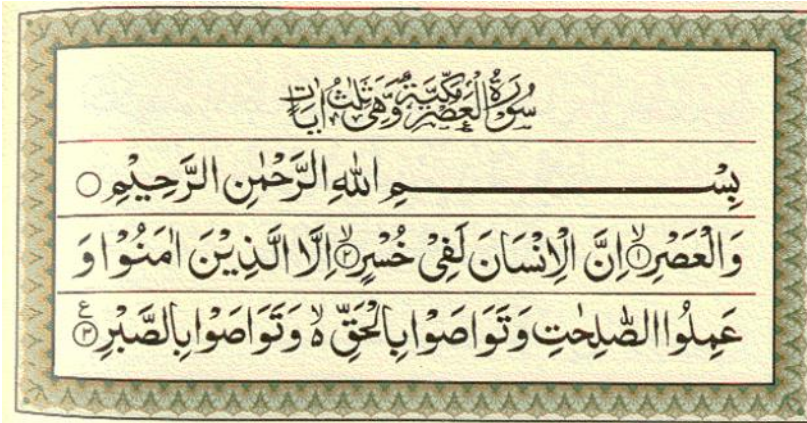 سُوْرَةُ الْعَصْرِ مَكِّيَّةٌ وَّهِيَ ثَلٰثُ اٰيَاتٍ
بِسْمِ اللهِ الرَّحْمٰنِ الرَّحِيْمِ ○
وَالْعَصْرِ ۙ﴿۱﴾ اِنَّ الْاِنْسَانَ لَفِيْ خُسْرٍ ۙ﴿۲﴾ اِلَّا الَّذِيْنَ اٰمَنُوْا وَ
عَمِلُوا الصّٰلِحٰتِ وَتَوَاصَوْا بِالْحَقِّ ۙ۬ وَتَوَاصَوْا بِالصَّبْرِ ﴿۳﴾ ع